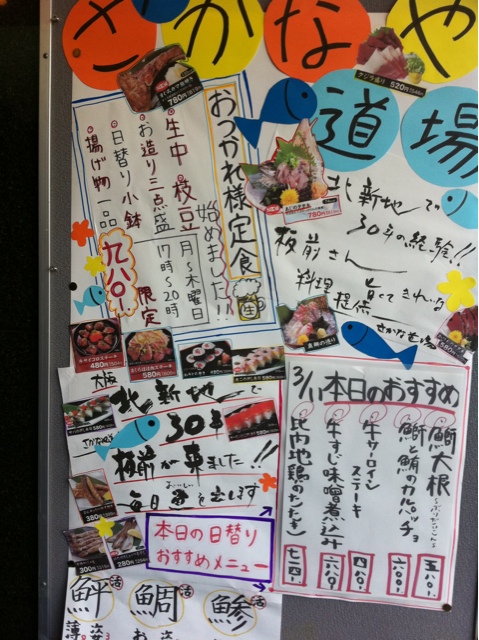 さかなや
道場
クジラ盛り 520円
780円
おつかれ様定食
始めました!!
生中 枝豆
お造り三点盛
日替り小鉢
揚げ物一品
九八〇-
月~木曜日
17時~20時
限定
生
780円
北新地で
30年の経験!!
板前さん
料理
提供
旨くてきれいな
さかなや道場
真鯛の造り
牛サイコロステーキ
480円
580円
大阪
北新地で
30年
板前が来ました!!
毎日
おいしい
を出します
380円
300円
280円
本日の日替り
おすすめメニュー
3/11本日のおすすめ
鰤大根
~ぶりだいこん~
鰤と鮪のカルパッチョ
牛サーロイン
ステーキ
牛すじ味噌煮込み
比内地鶏のたたき
五八〇-
六〇〇-
四八〇-
六八〇-
七二四-
鮃 活
鯛 活
鯵 活
薄
姿